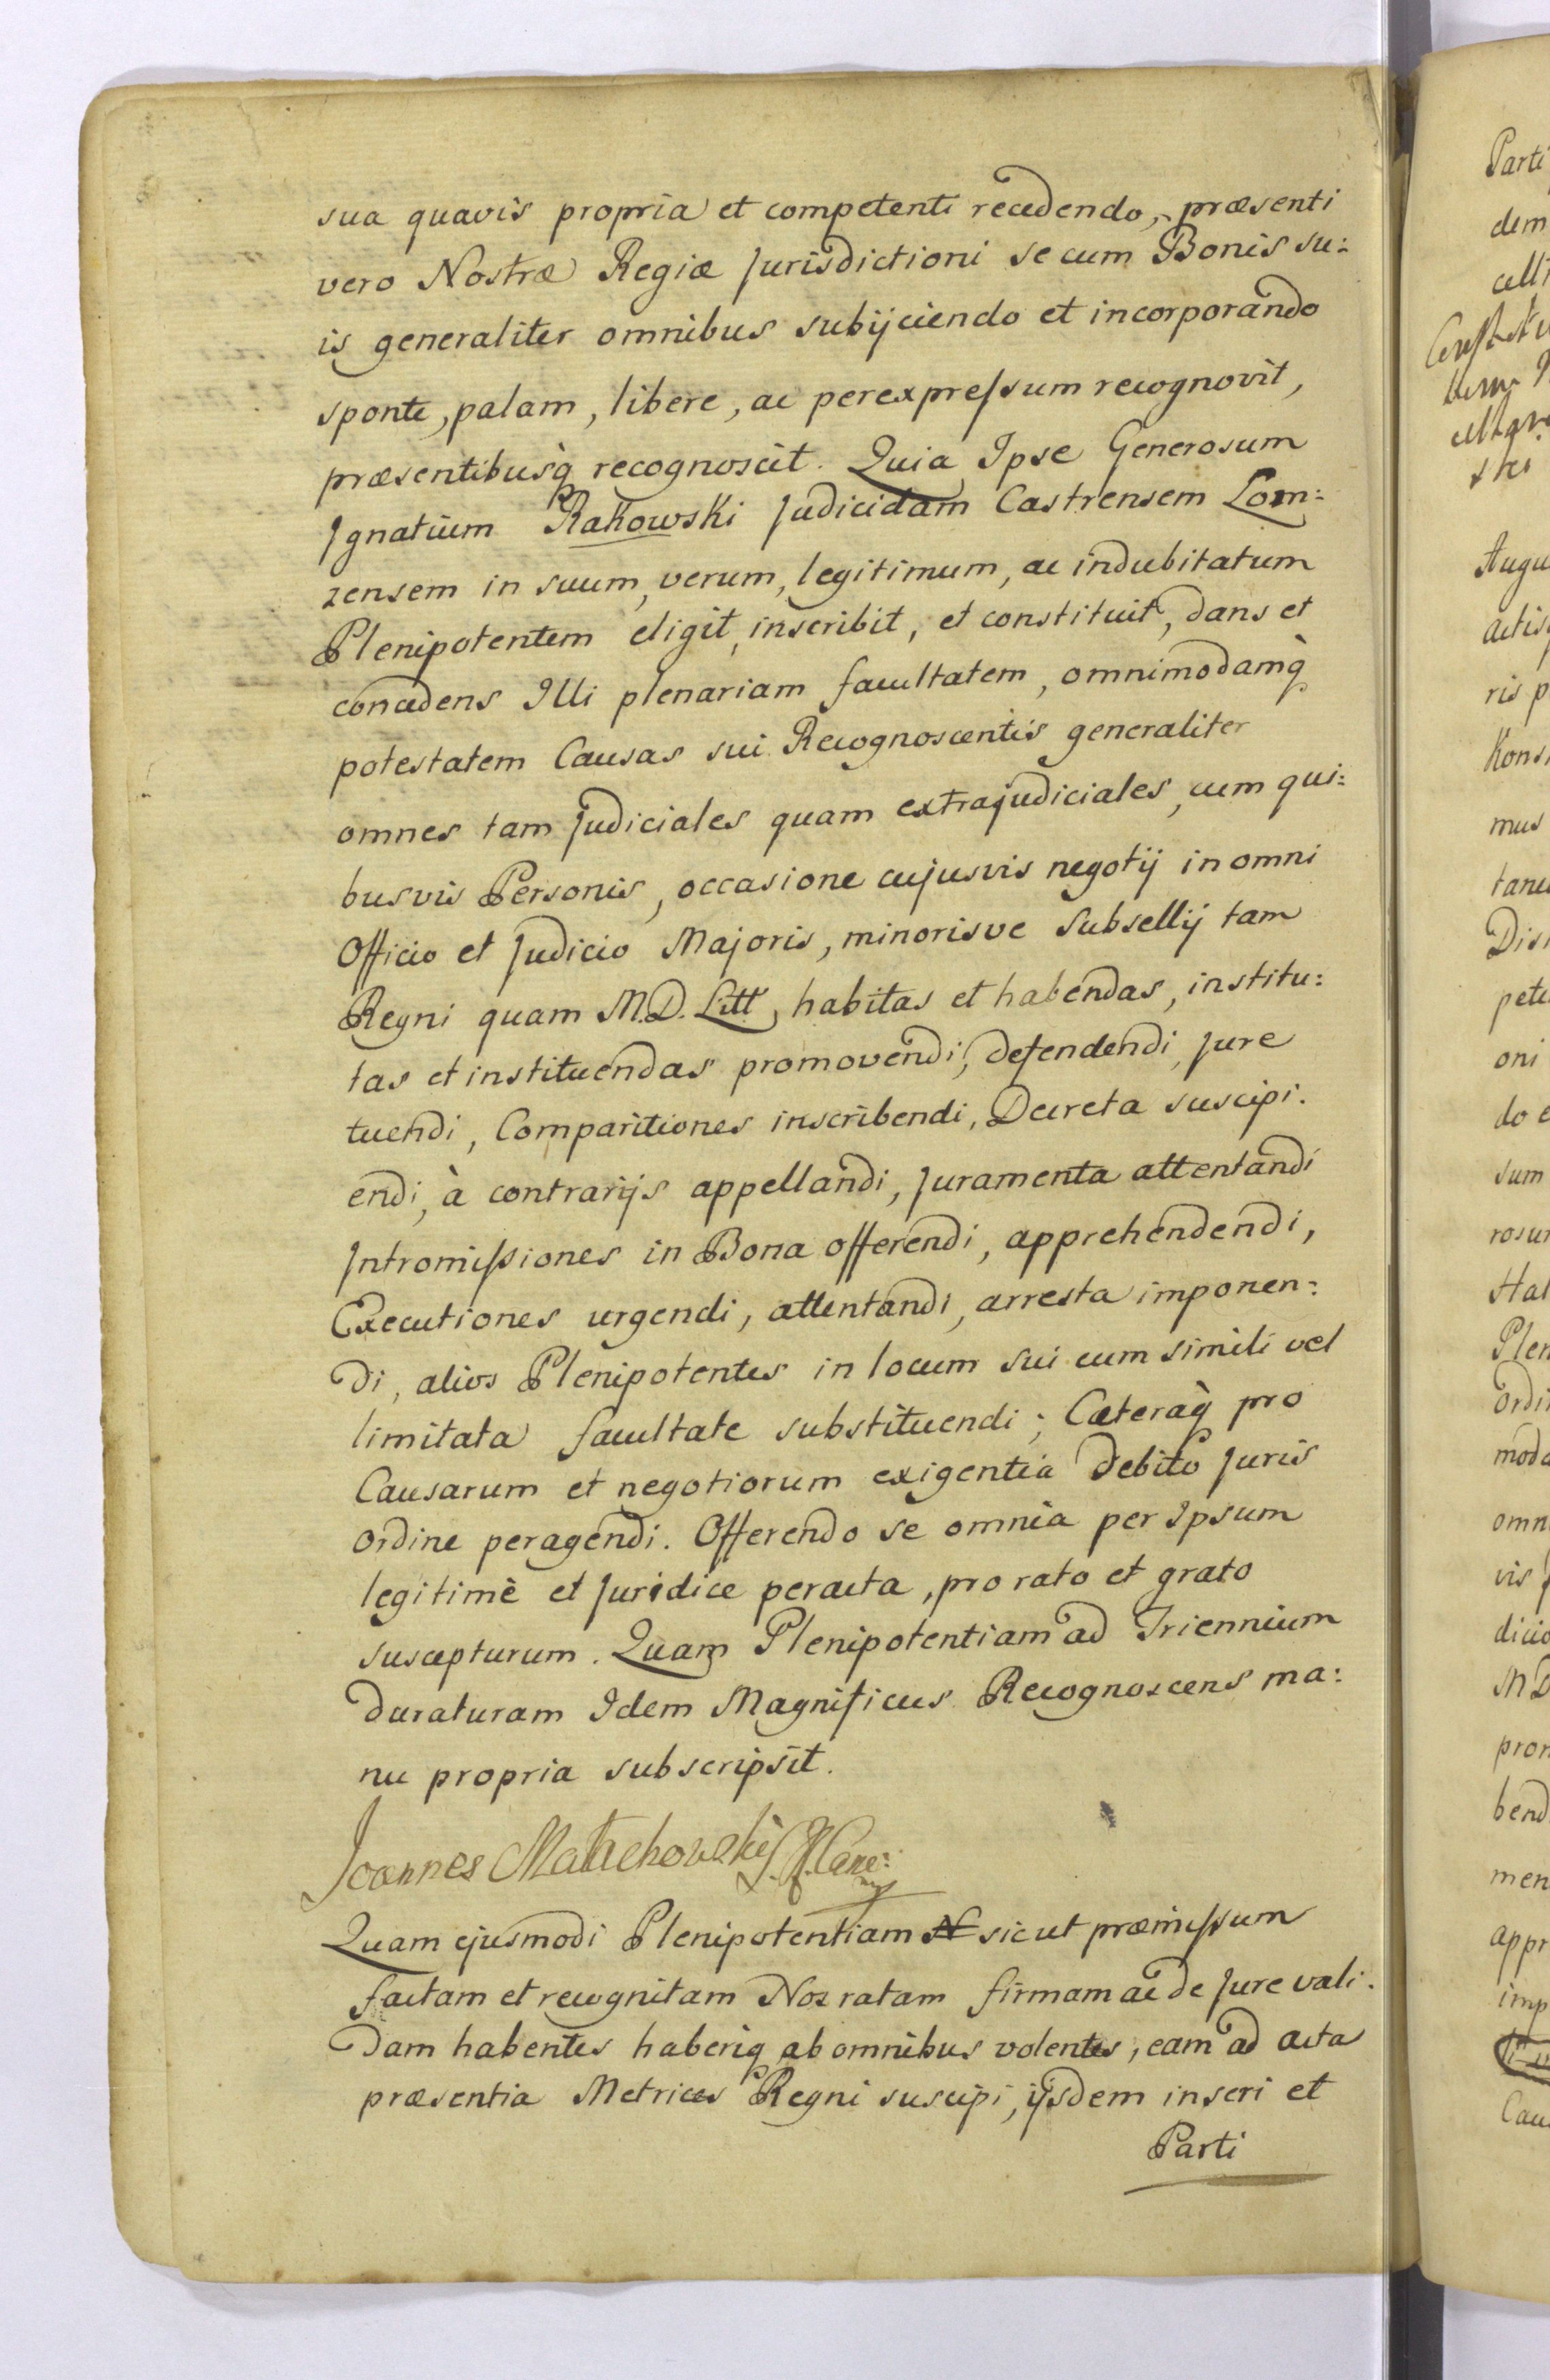 sua quavis propria et competenti recedendo, præsenti
vero Nostræ Regiæ Jurisdictioni se cum Bonis su:
is generaliter omnibus subijciendo et incorporando
sponte, palam, libere, ac perexpressum recognovit,
præsentibusq̀ recognoscit. Quia Ipse Generosum
Ignatium Rakowski Judicidam Castrensem Lom:
zensem in suum, verum, legitimum, ac indubitatum
Plenipotentem eligit, inscribit, et constituit, dans et
concedens Illi plenariam facultatem, omnimodamq̀
potestatem Causas sui Recognoscentis generaliter
omnes tam Judiciales quam extrajudiciales, cum qui:
busvis Personis, occasione cujusvis negotij in omni
Officio et Judicio Majoris, minorisve Subsellij tam
Regni quam M.D. Litt, habitas et habendas, institu:
tas et instituendas promovendi, defendendi, Jure
tuendi, Comparitiones inscribendi, Decreta suscipi.
endi, à contrarijs appellandi, Juramenta attentandi
Intromissiones in Bona offerendi, apprehendendi,
Executiones urgendi, attentandi, arresta imponen:
di, alios Plenipotentes in locum sui cum simili vel
limitata facultate substituendi; Cæteraq̀ pro
Causarum et negotiorum exigentia debito Juris
ordine peragendi. Offerendo se omnia per Ipsum
legitimè et Juridice peracta, pro rato et grato
suscepturum. Quam Plenipotentiam ad Triennium
duraturam Idem Magnificus Recognoscens ma:
nu propria subscripsit.
Joannes Małachowski
Quam ejusmodi Plenipotentiam sicut præmissum
factam et recognitam Nos ratam firmam ac de Jure vali.
dam habentes haberiq ab omnibus volentes, eam ad acta
præsentia Metrices Regni suscipi, ijsdem inseri et
Parti
Parti
dem
ris p
mus
Plen
omn
vis
pron
bend
men
appr
imp
Cau